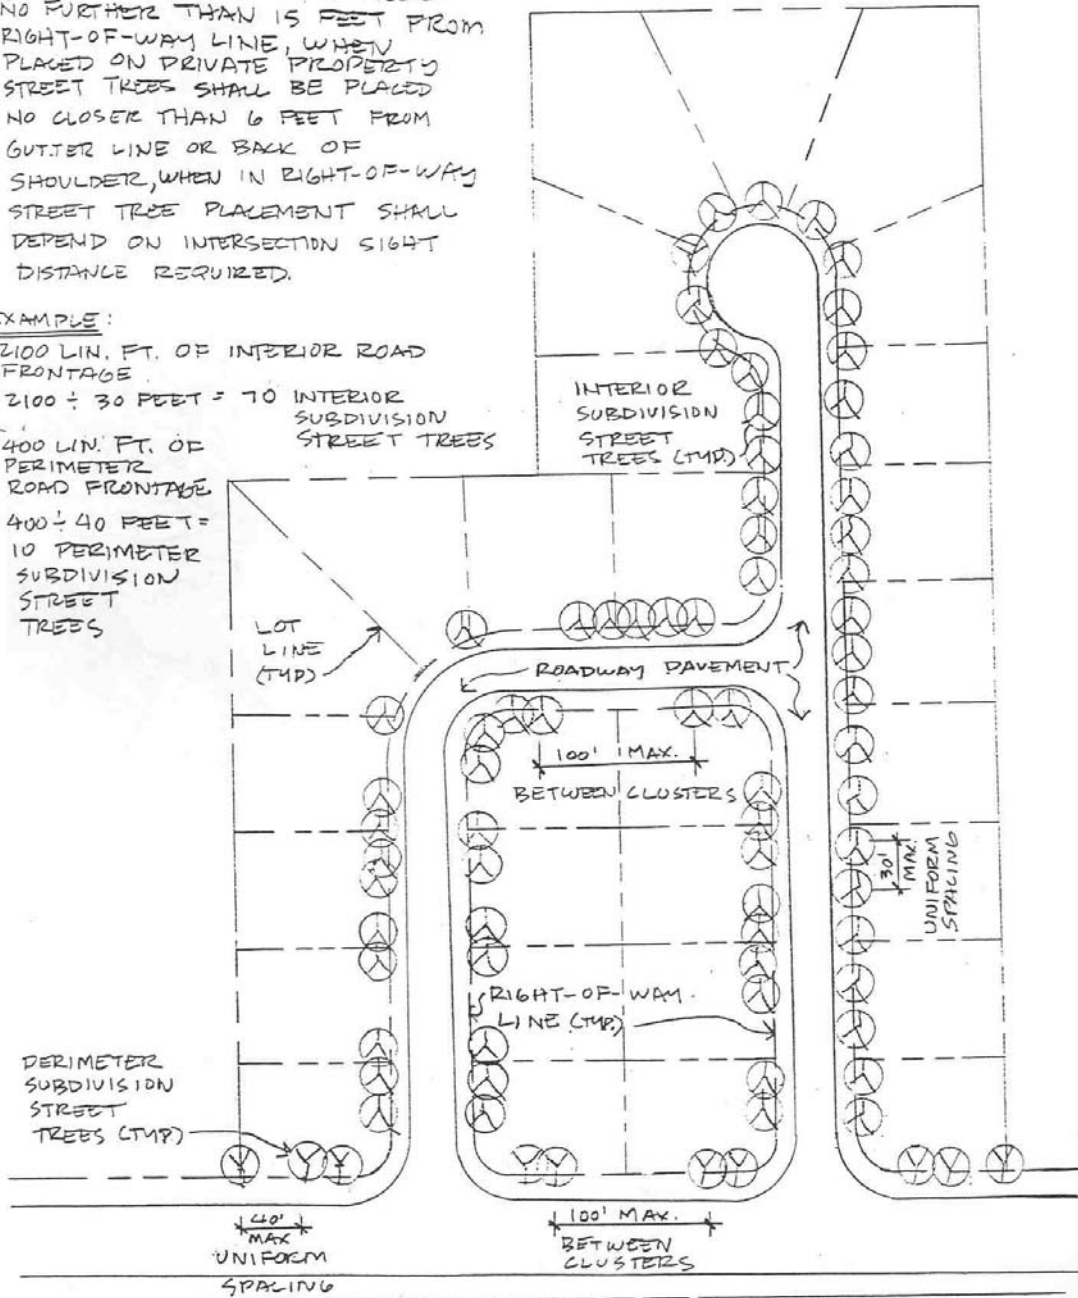 NO FURTHER THAN 15 FEET FROM
RIGHT-OF-WAY LINE, WHEN
PLACED ON PRIVATE PROPERTY
STREET TREES SHALL BE PLACED
NO CLOSER THAN 6 FEET FROM
GUTTER LINE OR BACK OF
SHOULDER, WHEN IN RIGHT-OF-WAY
STREET TREE PLACEMENT SHALL
DEPEND ON INTERSECTION SIGHT
DISTANCE REQUIRED.
EXAMPLE:
2100 LIN. FT. OF INTERIOR ROAD
FRONTAGE
2100 ÷ 30 FEET = 70 INTERIOR
SUBDIVISION
STREET TREES
400 LIN. FT. OF
PERIMETER
ROAD FRONTAGE
400 ÷ 40 FEET =
10 PERIMETER
SUBDIVISION
STREET
TREES
INTERIOR
SUBDIVISION
STREET
TREES (TYP.)
LOT
LINE
(TYP)
ROADWAY PAVEMENT
100' MAX.
BETWEEN CLUSTERS
30'
MAX.
UNIFORM
SPACING
RIGHT-OF-WAY
LINE (TYP.)
PERIMETER
SUBDIVISION
STREET
TREES (TYP.)
40'
MAX
UNIFORM
SPACING
100' MAX.
BETWEEN
CLUSTERS